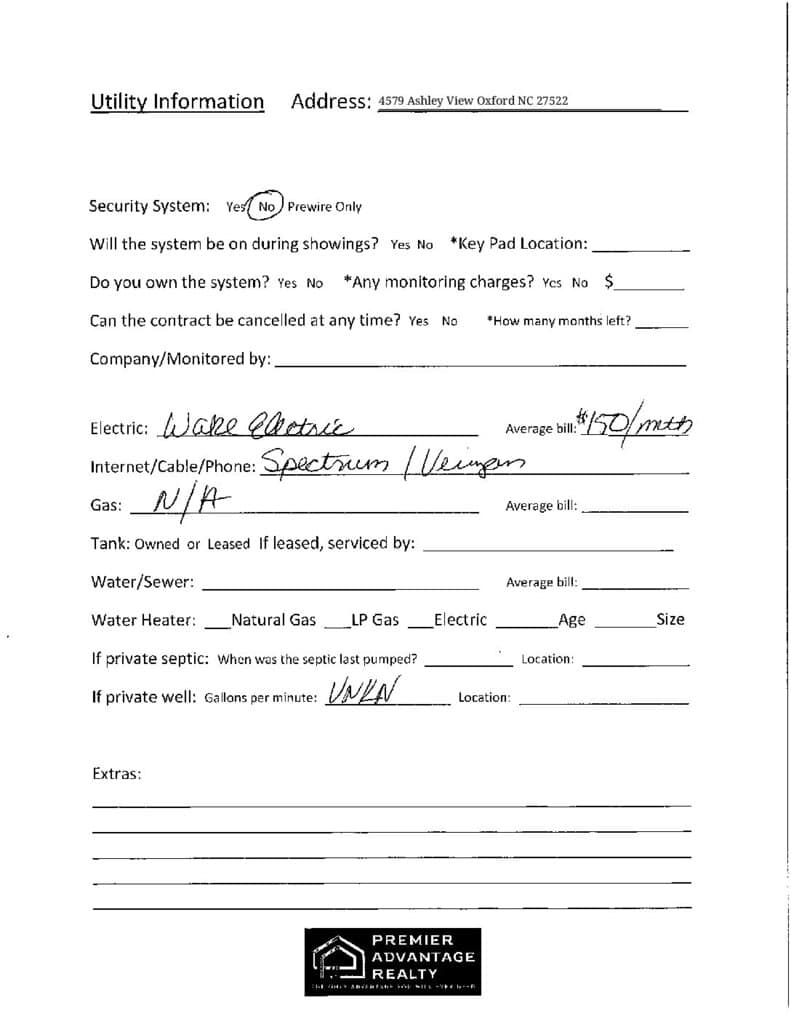 Utility Information Address: 4579 Ashley View Oxford NC 27522
Security System: Yes No Prewire Only
Will the system be on during showings? Yes No *Key Pad Location:
Do you own the system? Yes No *Any monitoring charges? Yes No $
Can the contract be cancelled at any time? Yes No *How many months left?
Company/Monitored by:
Electric: Wake Electric Average bill: $150/mth
Internet/Cable/Phone: Spectrum /
Gas: N/A Average bill:
Tank: Owned or Leased If leased, serviced by:
Water/Sewer: Average bill:
Water Heater: Natural Gas LP Gas Electric Age Size
If private septic: When was the septic last pumped? Location:
If private well: Gallons per minute: UNKN Location:
Extras:
PREMIER
ADVANTAGE
REALTY